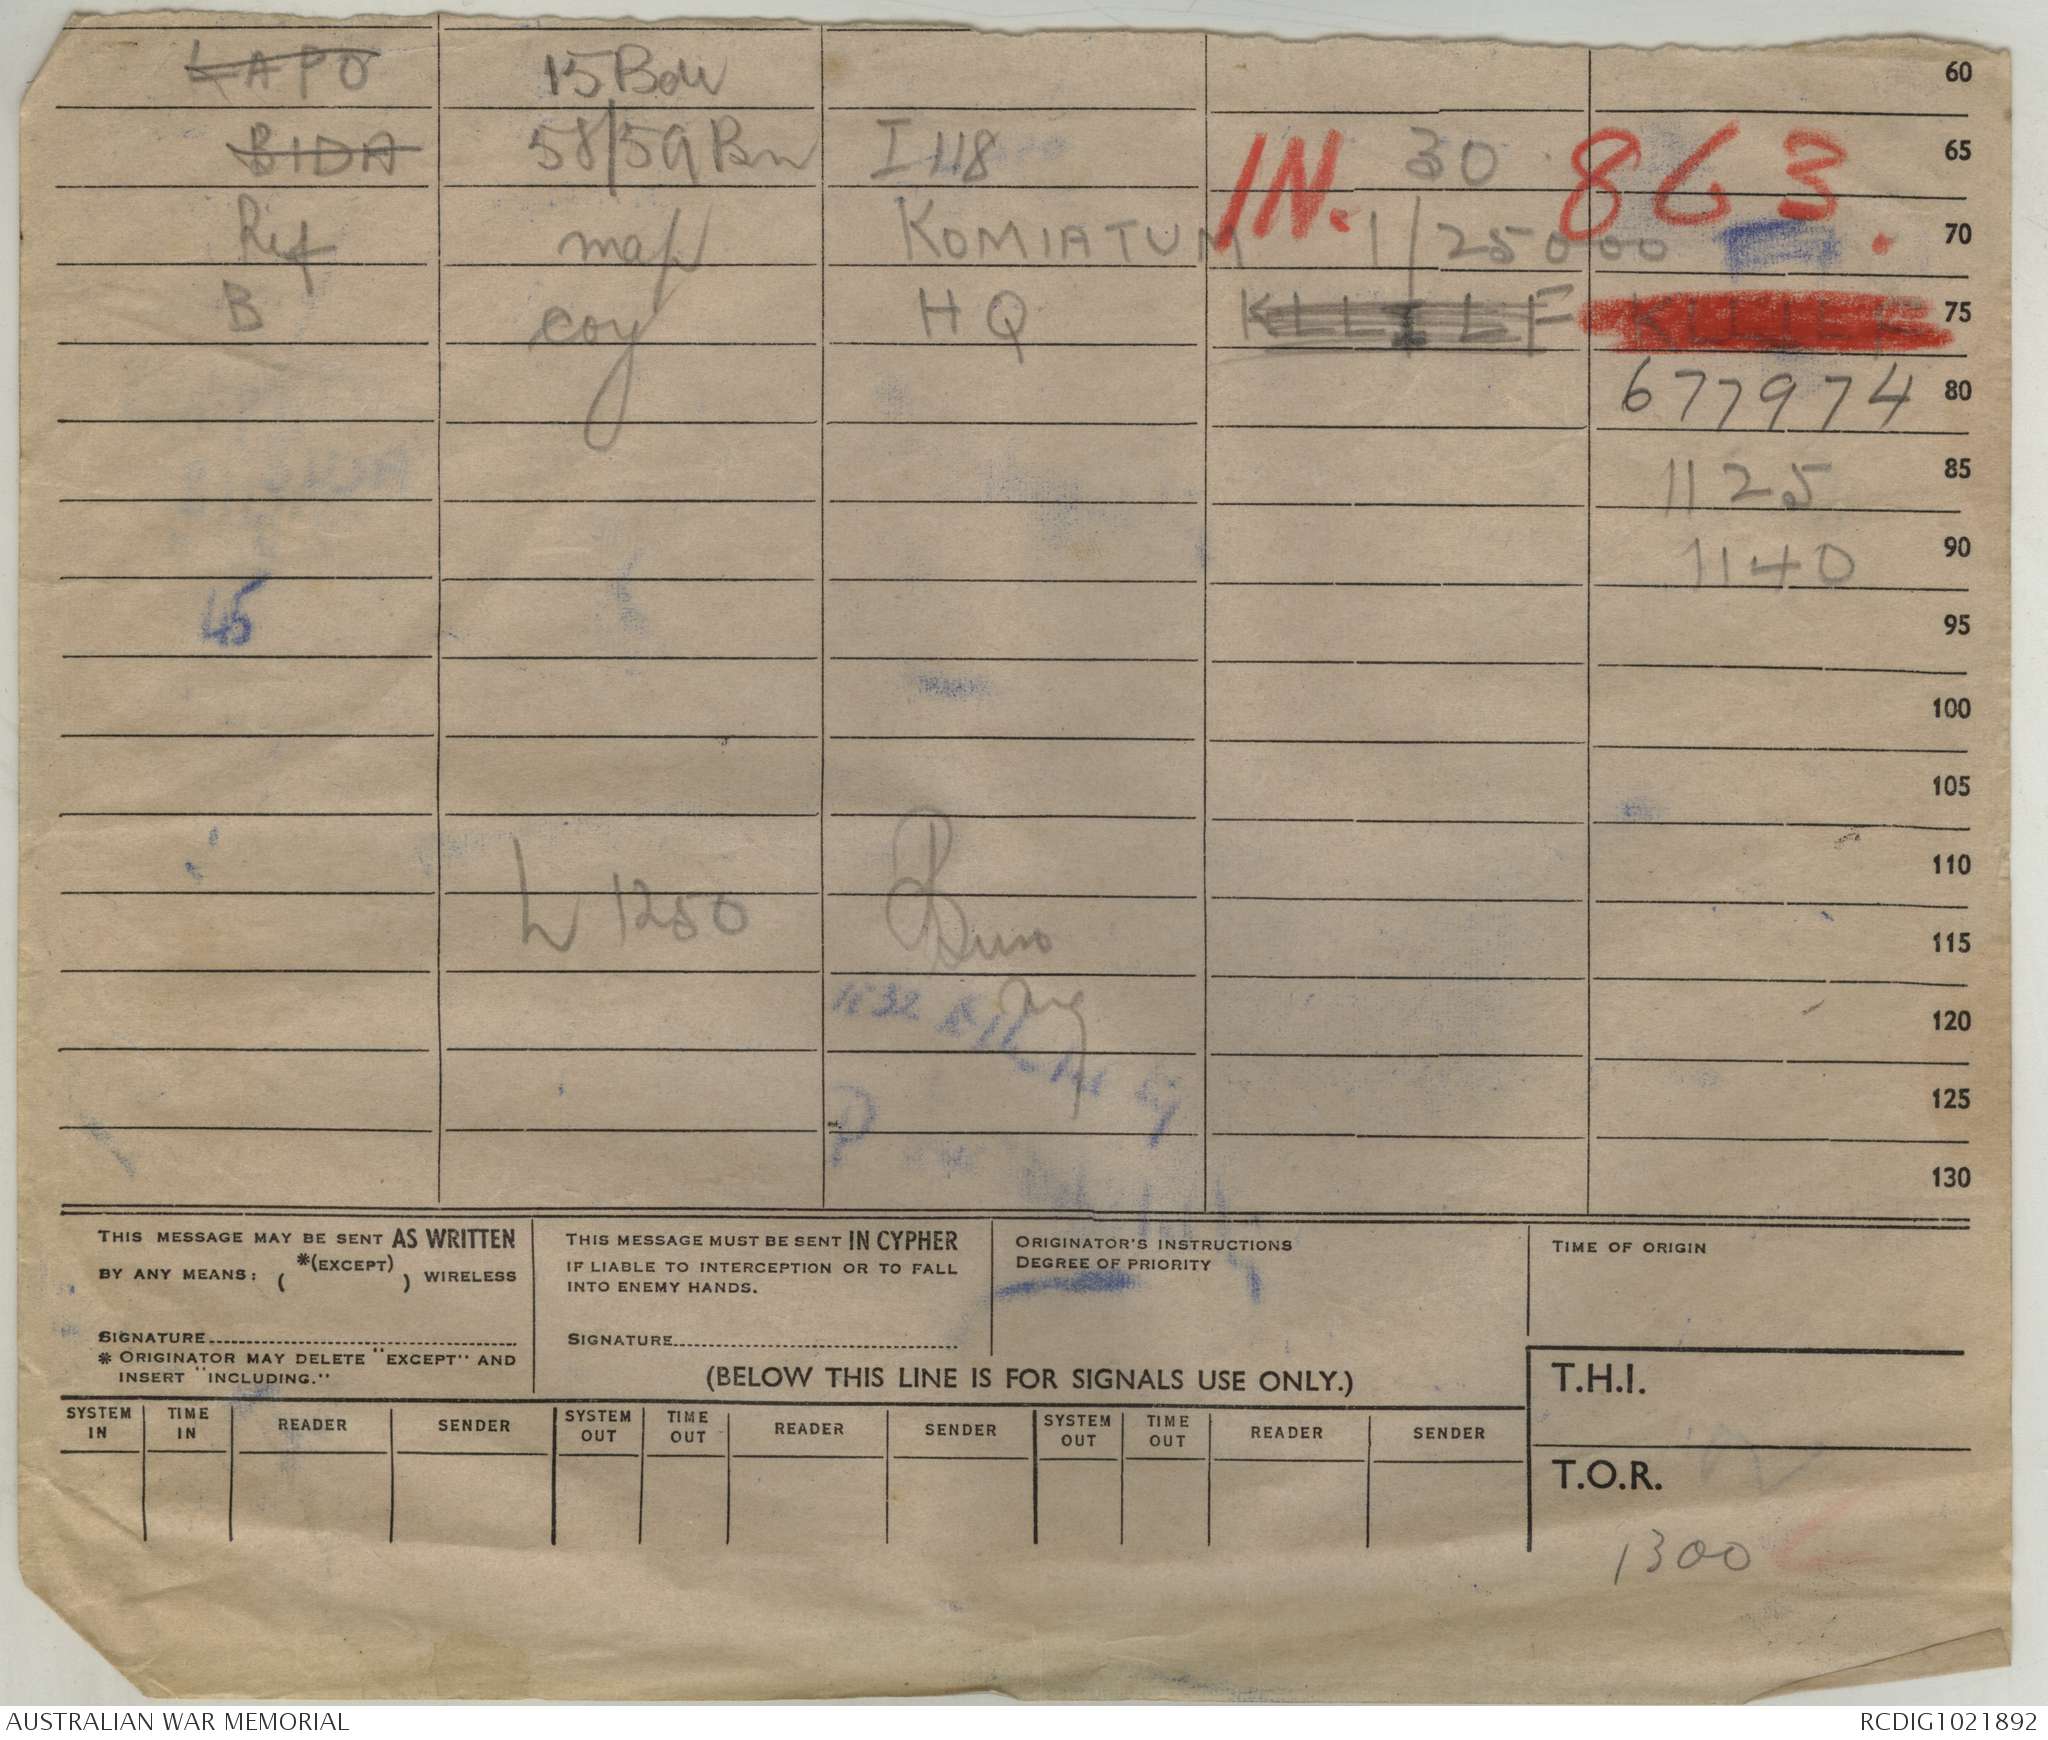 LAPO 15 Bde 60
BIDA 58/59 Bn I 118 30 65
IN. 863.
Ref map KOMIATUM 1/25000 70
B coy HQ 75
677974 80
1125 85
1140 90
45 95
100
105
110
1250 115
120
125
130
THIS MESSAGE MAY BE SENT AS WRITTEN
BY ANY MEANS: ( *(EXCEPT) ) WIRELESS
SIGNATURE
* ORIGINATOR MAY DELETE "EXCEPT" AND
INSERT "INCLUDING."
THIS MESSAGE MUST BE SENT IN CYPHER
IF LIABLE TO INTERCEPTION OR TO FALL
INTO ENEMY HANDS.
SIGNATURE
ORIGINATOR'S INSTRUCTIONS
DEGREE OF PRIORITY
TIME OF ORIGIN
(BELOW THIS LINE IS FOR SIGNALS USE ONLY.)
T.H.I.
SYSTEM IN TIME IN READER SENDER SYSTEM OUT TIME OUT READER SENDER SYSTEM OUT TIME OUT READER SENDER
T.O.R.
1300
AUSTRALIAN WAR MEMORIAL RCDIG1021892